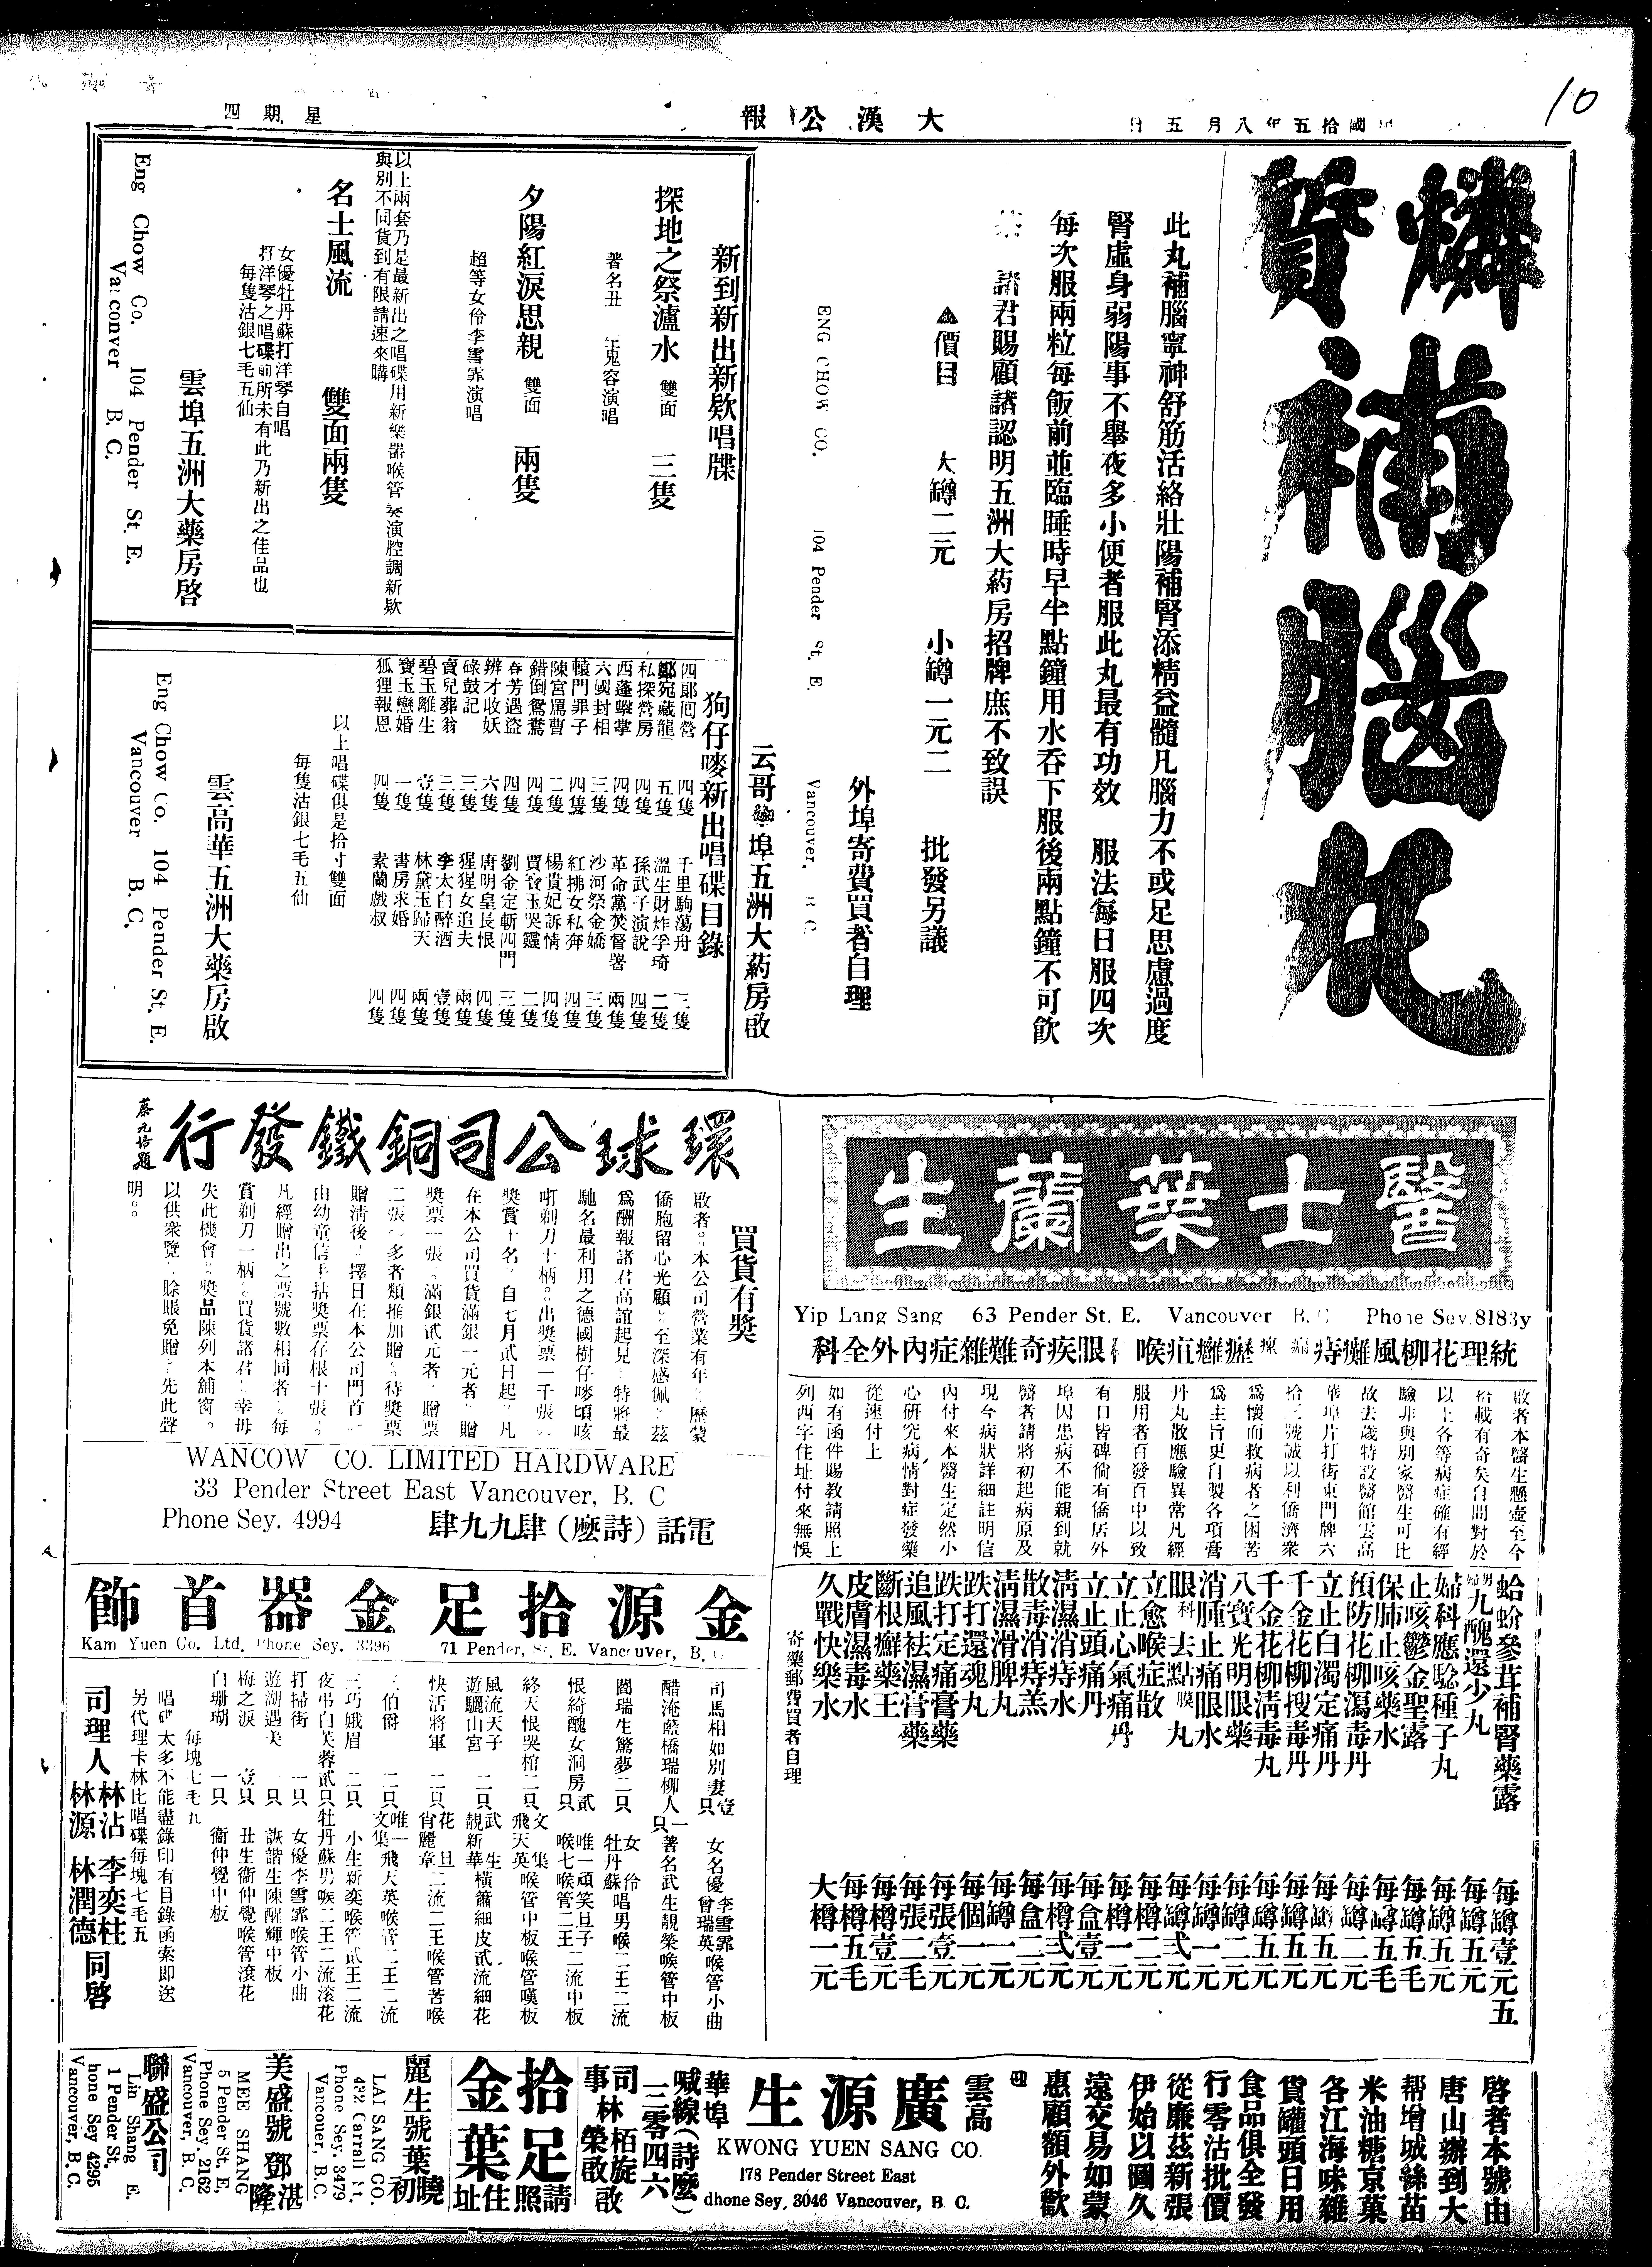 10
國拾五年八月五日
大漢公報
星期四
燐質補腦丸
此丸補腦寧神舒筋活絡壯陽補腎添精益髓凡腦力不或足思慮過度
腎虛身弱陽事不舉夜多小便者服此丸最有功效 服法每日服四次
每次服兩粒每飯前並臨睡時早半點鐘用水吞下服後兩點鐘不可飲
茶 諸君賜顧請認明五洲大葯房招牌庶不致誤
▲價目 大罇二元 小罇一元二 批發另議
外埠寄費買者自理
ENG CHOW CO. 104 Pender St. E. Vancouver, B C.
云哥華埠五洲大葯房啟
新到新出新欵唱牒
探地之祭瀘水 雙面 三隻
著名丑 生鬼容演唱
夕陽紅淚思親 雙面 兩隻
超等女伶李雪霏演唱
以上兩套乃是最新出之唱碟用新樂器喉管奏演腔調新欵
與別不同貨到有限請速來購
名士風流 雙面兩隻
女優牡丹蘇打洋琴自唱
打洋琴之唱碟前所未有此乃新出之佳品也
每隻沽銀七毛五仙
雲埠五洲大藥房啓
Eng Chow Co. 104 Pender St. E.
Vancouver B. C.
狗仔嘜新出唱碟目錄
四郎回營 四隻 千里駒蕩舟 三隻
鄭宛藏龍 五隻 溫生財炸孚琦 二隻
私探營房 四隻 孫武子演說 四隻
西蓬擊掌 四隻 革命黨焚督署 兩隻
六國封相 三隻 沙河祭金嬌 三隻
轅門罪子 四隻 紅拂女私奔 四隻
陳宮罵曹 二隻 楊貴妃訴情 四隻
錯倒鴛鴦 四隻 賈寶玉哭靈 二隻
春芳遇盜 四隻 劉金定斬四門 三隻
辨才收妖 六隻 唐明皇長恨 四隻
碌鼓記 三隻 猩猩女追夫 兩隻
賣兒葬翁 三隻 李太白醉酒 壹隻
碧玉離生 壹隻 林黛玉歸天 兩隻
寶玉戀婚 一隻 書房求婚 四隻
狐狸報恩 四隻 素蘭戲叔 四隻
以上唱碟俱是拾寸雙面
每隻沽銀七毛五仙
雲高華五洲大藥房啟
Eng Chow Co. 104 Pender St. E.
Vancouver B. C.
醫士葉蘭生
Yip Lang Sang 63 Pender St. E. Vancouver B. C Phone Sey.8183y
統理花柳風癱痔 癧癰疽喉 眼疾奇難雜症內外全科
啟者本醫生懸壺至今
拾載有奇矣自問對於
以上各等病症確有經
驗非與別家醫生可比
故去歲特設醫館雲高
華埠片打街東門牌六
拾三號誠以利僑濟衆
爲懷而救病者之困苦
爲主旨更自製各項膏
丹丸散應驗異常凡經
服用者百發百中以致
有口皆碑倘有僑居外
埠因患病不能親到就
醫者請將初起病原及
現今病狀詳細註明信
內付來本醫生定然小
心研究病情對症發藥
從速付上
如有函件賜教請照上
列西字住址付來無悞
蛤蚧參茸補腎藥露 每罇壹元五
男婦九醜還少丸 每罇五元
婦科應驗種子丸 每罇五元
止咳鬱金聖露 每罇五毛
保肺止咳藥水 每罇五毛
預防花柳瀉毒丹 每罇二元
立止白濁定痛丹 每罇五元
千金花柳搜毒丹 每罇五元
千金花柳清毒丸 每罇五元
八寶光明眼藥 每罇二元
消腫止痛眼水 每罇一元
眼科去點膜丸 每罇弍元
立愈喉症散 每樽二元
立止心氣痛丹 每樽一元
立止頭痛丹 每盒壹元
清濕消痔水 每樽弍元
散毒消痔羔 每盒二元
清濕滑脾丸 每罇一元
跌打還魂丸 每個一元
跌打定痛膏藥 每張壹元
追風袪濕膏藥 每張二毛
斷根癬藥王 每樽壹元
皮膚濕毒水 每樽五毛
久戰快樂水 大樽一元
寄藥郵費買者自理
環球公司銅鐵發行
蔡元培題
買貨有獎
啟者。本公司營業有年。歷蒙
僑胞留心光顧。至深感佩。茲
爲酬報諸君高誼起見。特將最
馳名最利用之德國樹仔嘜頃咳
吖剃刀十柄。出獎票一千張。
獎賞十名。自七月貳日起。凡
在本公司買貨滿銀一元者。贈
獎票一張。滿銀貳元者。贈票
二張。多者類推加贈。待獎票
贈清後。擇日在本公司門首。
由幼童信手拈獎票存根十張。
凡經贈出之票號數相同者。每
賞剃刀一柄。買貨諸君。幸毋
失此機會。獎品陳列本舖窗。
以供衆覽。賒賬免贈。先此聲
明。。
WANCOW CO. LIMITED HARDWARE
33 Pender Street East Vancouver, B. C
Phone Sey. 4994 電話（詩麼）肆九九肆
金源拾足金器首飾
Kam Yuen Co. Ltd. Phone Sey. 3396 71 Pender, St. E. Vancouver, B. C
司馬相如別妻 壹只 女名優李雪霏 曾瑞英 喉管小曲
醋淹藍橋瑞柳人 一只 著名武生靚榮喉管中板
園瑞生驚夢 二只 女伶牡丹蘇 唱男喉二王二流
恨綺醜女洞房 貳只 唯一頑笑旦子喉七 喉管二王二流中板
終天恨哭棺 二只 文集飛天英 喉管中板喉管嘆板
風流天子遊驪山宮 二只 武生靚新華 橫簫細皮貳流細花
快活將軍 二只 花旦肖麗章 二流二王喉管苦喉
三伯爵 二只 唯一文集飛天英喉管二王二流
三巧娥眉 二只 小生新奕喉管貳王二流
夜弔白芙蓉 貳只 牡丹蘇男喉二王二流滾花
打掃街 一只 女優李雪霏喉管小曲
遊湖遇美 一只 詼諧生陳醒輝中板
梅之淚 壹只 丑生衞仲覺喉管滾花
白珊瑚 一只 衞仲覺中板
每塊七毛九
唱碟太多不能盡錄印有目錄函索即送
另代理卡林比唱碟每塊七毛五
司理人 林沾 李奕柱 林源 林潤德 同啓
啓者本號由
唐山辦到大
帮增城絲苗
米油糖京菓
各江海味雜
貨罐頭日用
食品俱全發
行零沽批價
從廉茲新張
伊始以圖久
遠交易如蒙
惠顧額外歡
雲高華埠 廣源生
KWONG YUEN SANG CO.
178 Pender Street East
Phone Sey, 3046 Vancouver, B. C.
喊線（詩麼）三零四六
司事 林栢旋 林榮 啟
拾足金葉
請照住址
麗生號 葉曉初
LAI SANG CO.
432 Carrall St.
Phone Sey. 3479
Vancouver, B.C.
美盛號 鄧湛隆
MEE SHANG
5 Pender St. E,
Phone Sey. 2162
Vancouver, B. C.
聯盛公司
Lin Shang
1 Pender St. E.
Phone Sey 4295
Vancouver, B. C.